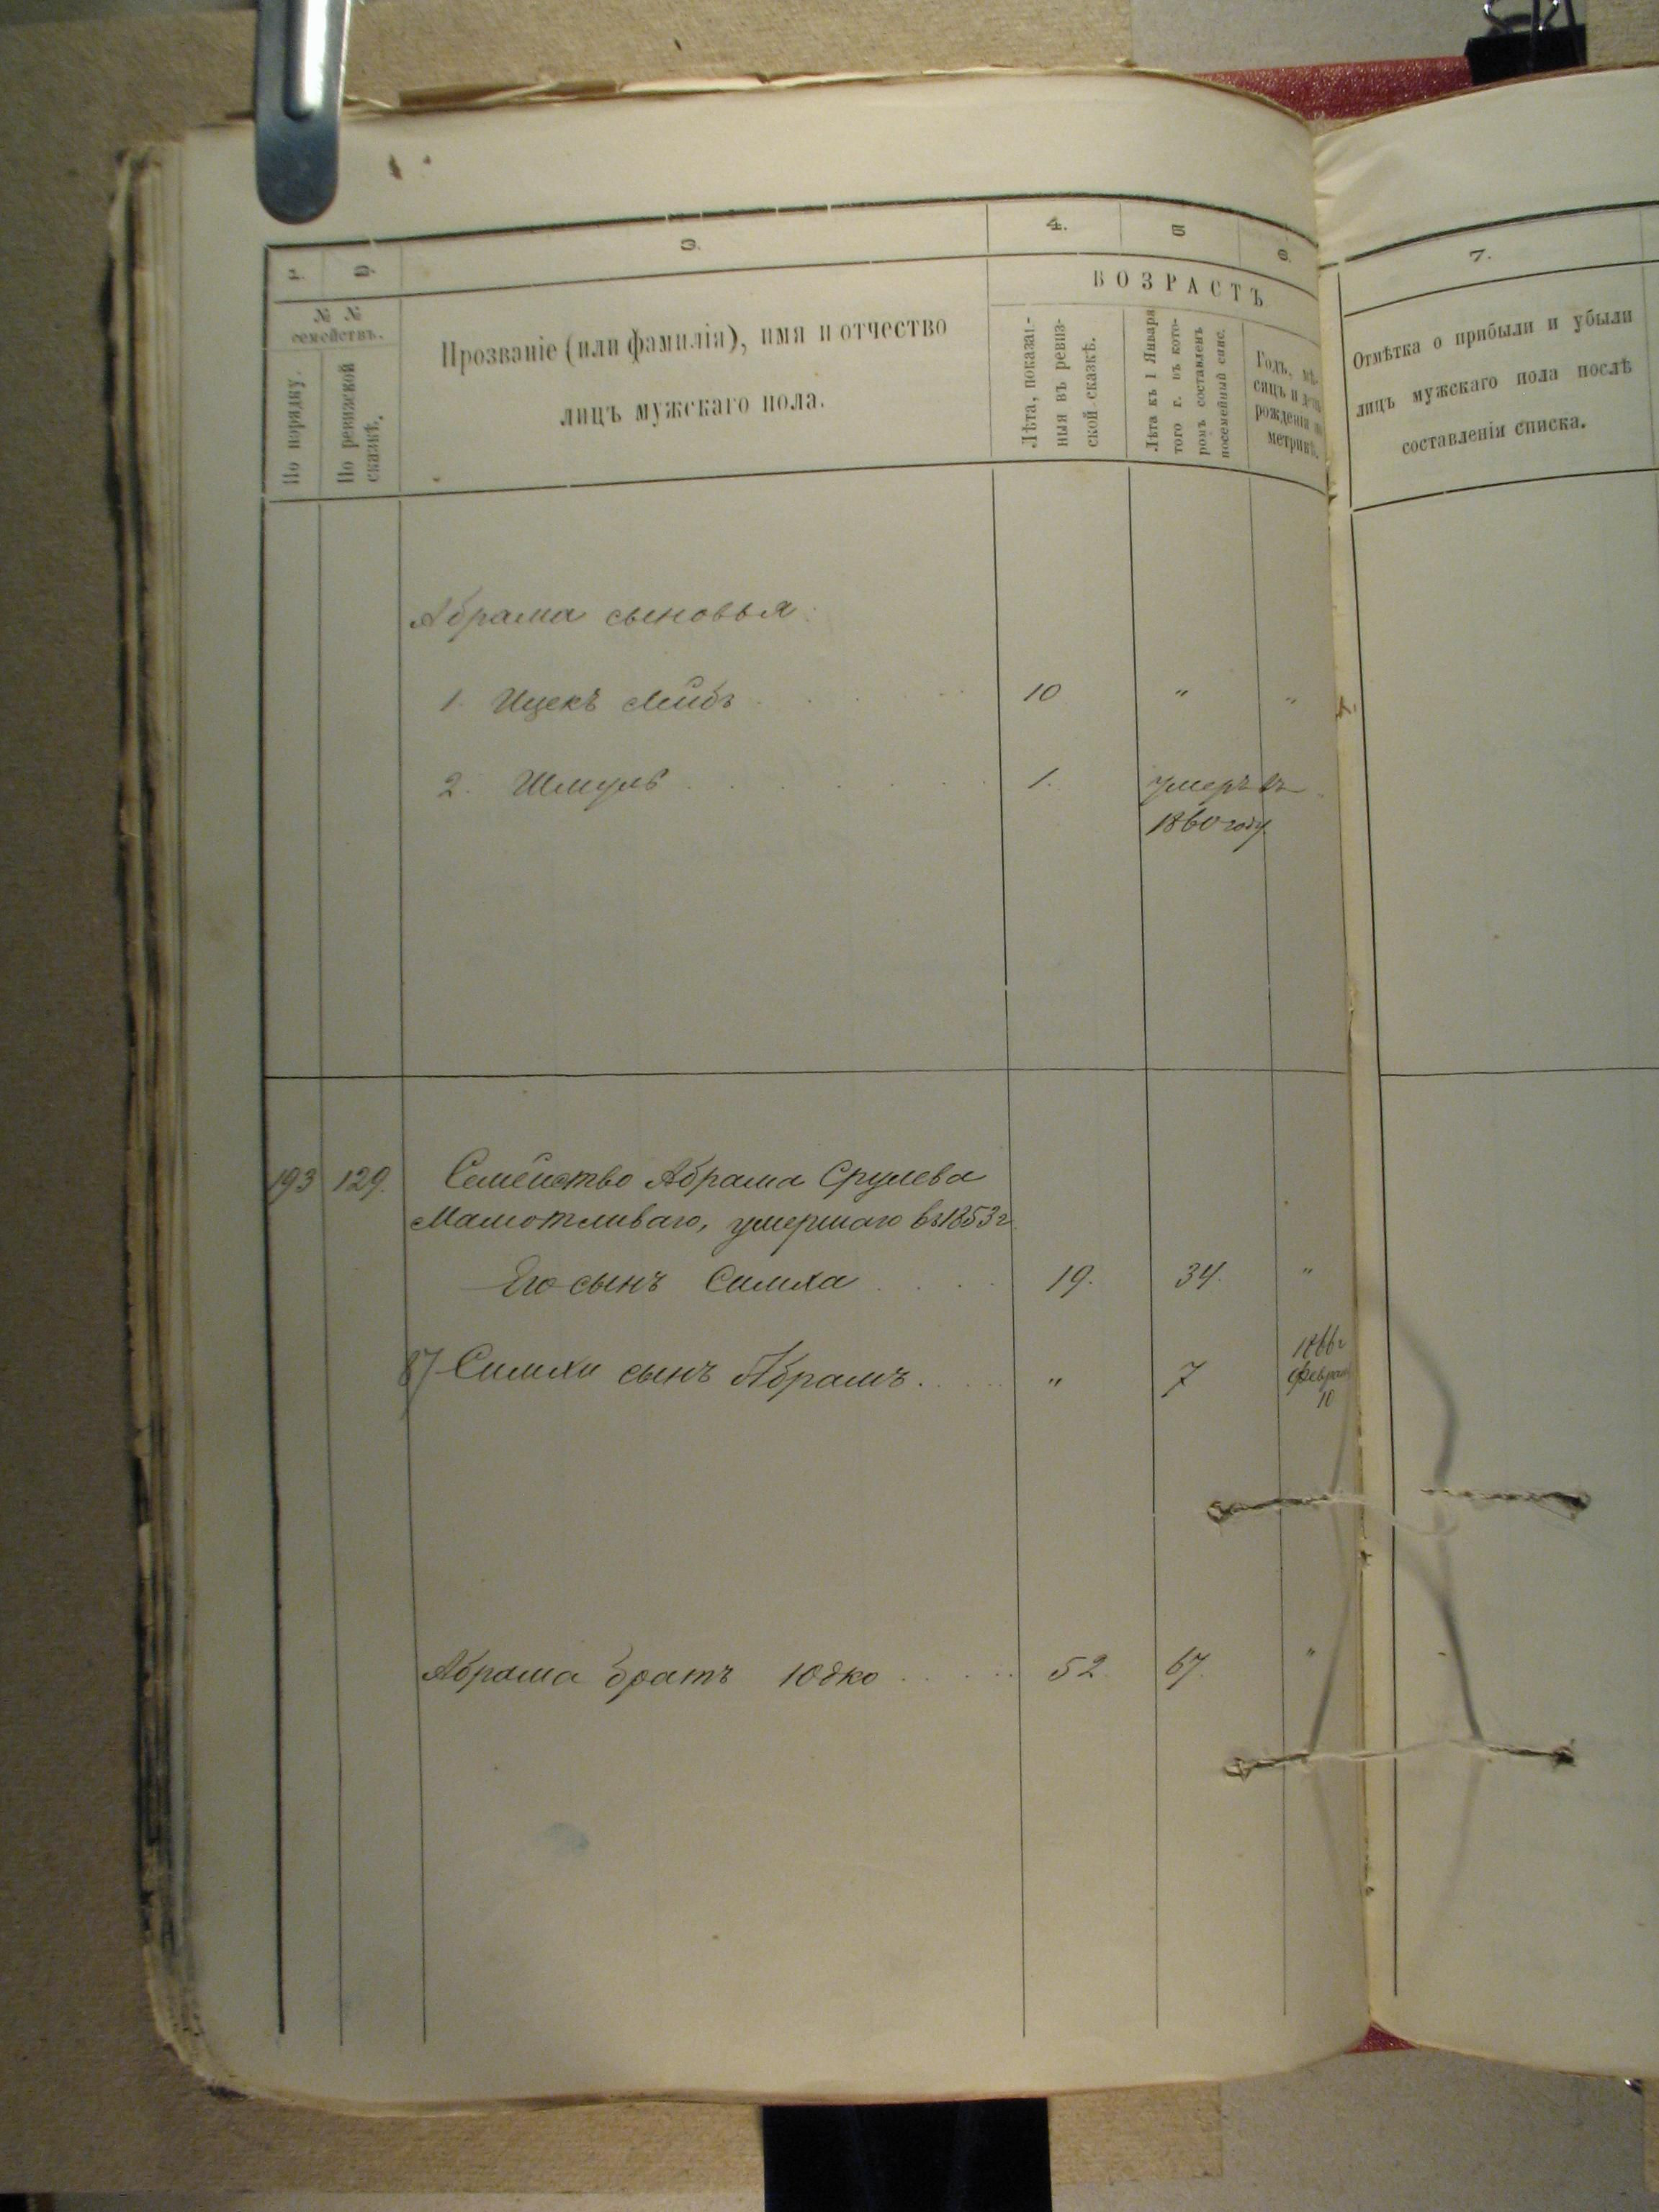 1. 2. 3. 4. 5 6.
№ № семействъ.
По порядку.
По ревизской сказкѣ.
Прозваніе (или фамилія), имя и отчество
лицъ мужскаго пола.
ВОЗРАСТЪ
Лѣта, показан-
ныя въ ревиз-
ской сказкѣ.
Лѣта къ 1 Января
того г. въ кото-
ромъ составленъ
посемейный спис.
Годъ, мѣ-
сяцъ и день
рожденія по
метрикѣ.
7.
Отмѣтка о прибыли и убыли
лицъ мужскаго пола послѣ
составленія списка.
Абрама сыновья:
1. Ицекъ Лейбъ 10 " "
2. Шмуль 1. умеръ въ
1860 году.
193 129. Семейство Абрама Срулева
умершаго въ 1853 г
Его сынъ Симха 19. 34. "
87 Симхи сынъ Абрамъ " 7 1866 г
Февраля
10
Абрама братъ Юдко 52. 67. "